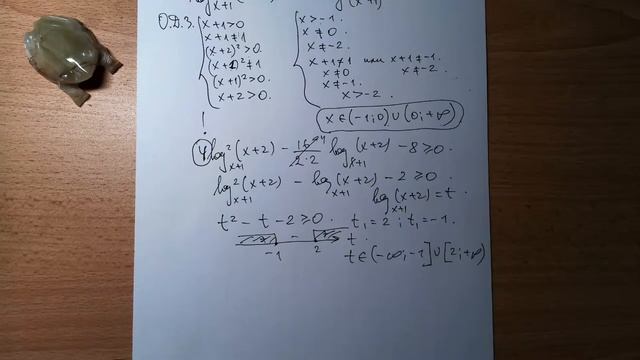 О.Д.З. { x+1>0 { x>-1.
x+1≠1 x≠0.
(x+2)²>0. x≠-2.
(x+1)²≠1 x+1≠1 или x+1≠-1.
(x+1)²>0. x≠0 x≠-2.
x≠-1.
x+2>0. x>-2.
x∈(-1;0)∪(0;+∞)
!
4log²ₓ₊₁(x+2) - 16/2·2 4 logₓ₊₁(x+2) -8≥0.
log²ₓ₊₁(x+2) - logₓ₊₁(x+2) -2≥0.
logₓ₊₁(x+2)=t.
t²-t-2≥0. t₁=2; t₁=-1.
+ - + t.
-1 2
t∈(-∞;-1]∪[2;+∞)